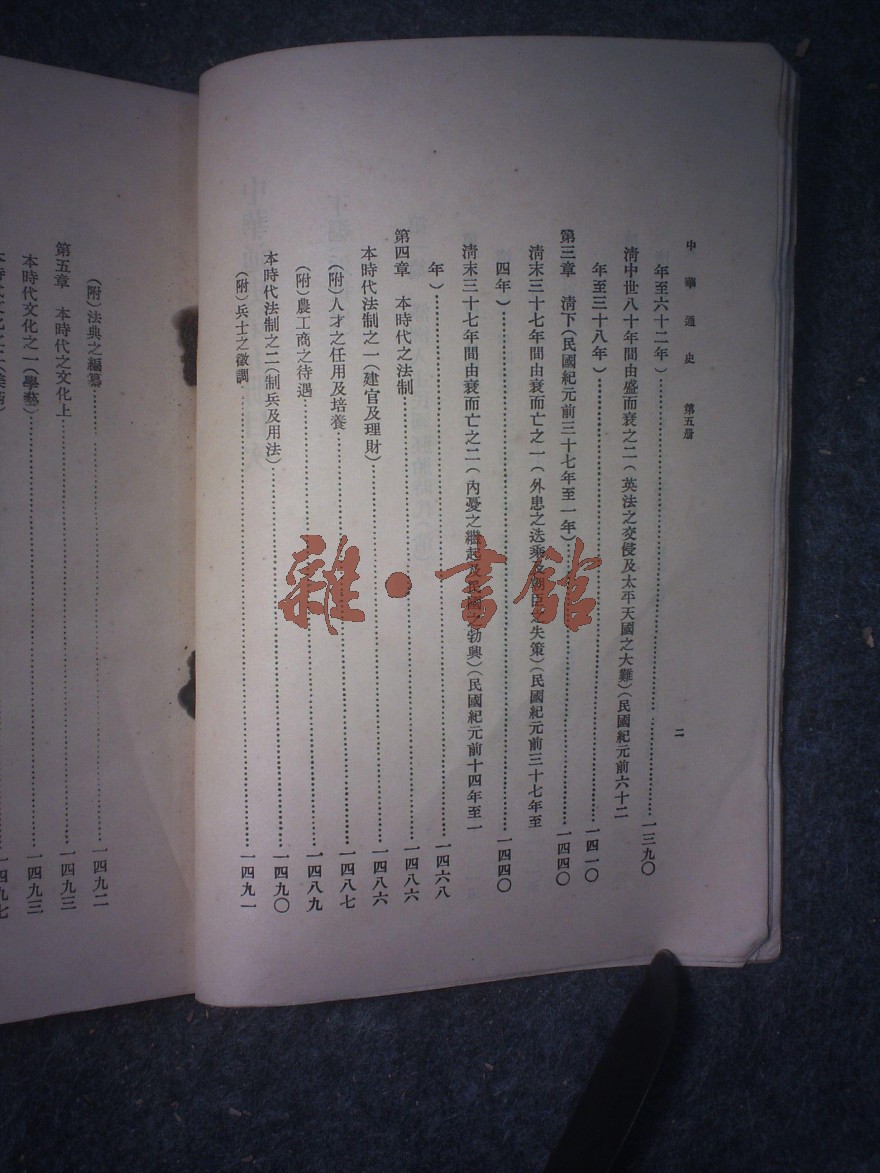 中華通史　第五册
二
年至六十二年）……一三九〇
淸中世八十年間由盛而衰之二（英法之交侵及太平天國之大難）（民國紀元前六十二
年至三十八年）……一四一〇
第三章　淸下（民國紀元前三十七年至一年）……一四四〇
淸末三十七年間由衰而亡之一（外患之迭乘及朝臣之失策）（民國紀元前三十七年至
四年）……一四四〇
淸末三十七年間由衰而亡之二（內憂之繼起及民國之勃興）（民國紀元前十四年至一
年）……一四六八
第四章　本時代之法制……一四八六
本時代法制之一（建官及理財）……一四八六
（附）人才之任用及培養……一四八七
（附）農工商之待遇……一四八九
本時代法制之二（制兵及用法）……一四九〇
（附）兵士之徵調……一四九一
（附）法典之編纂……一四九二
第五章　本時代之文化上……一四九三
本時代文化之一（學藝）……一四九三
一四九七
雜·書館